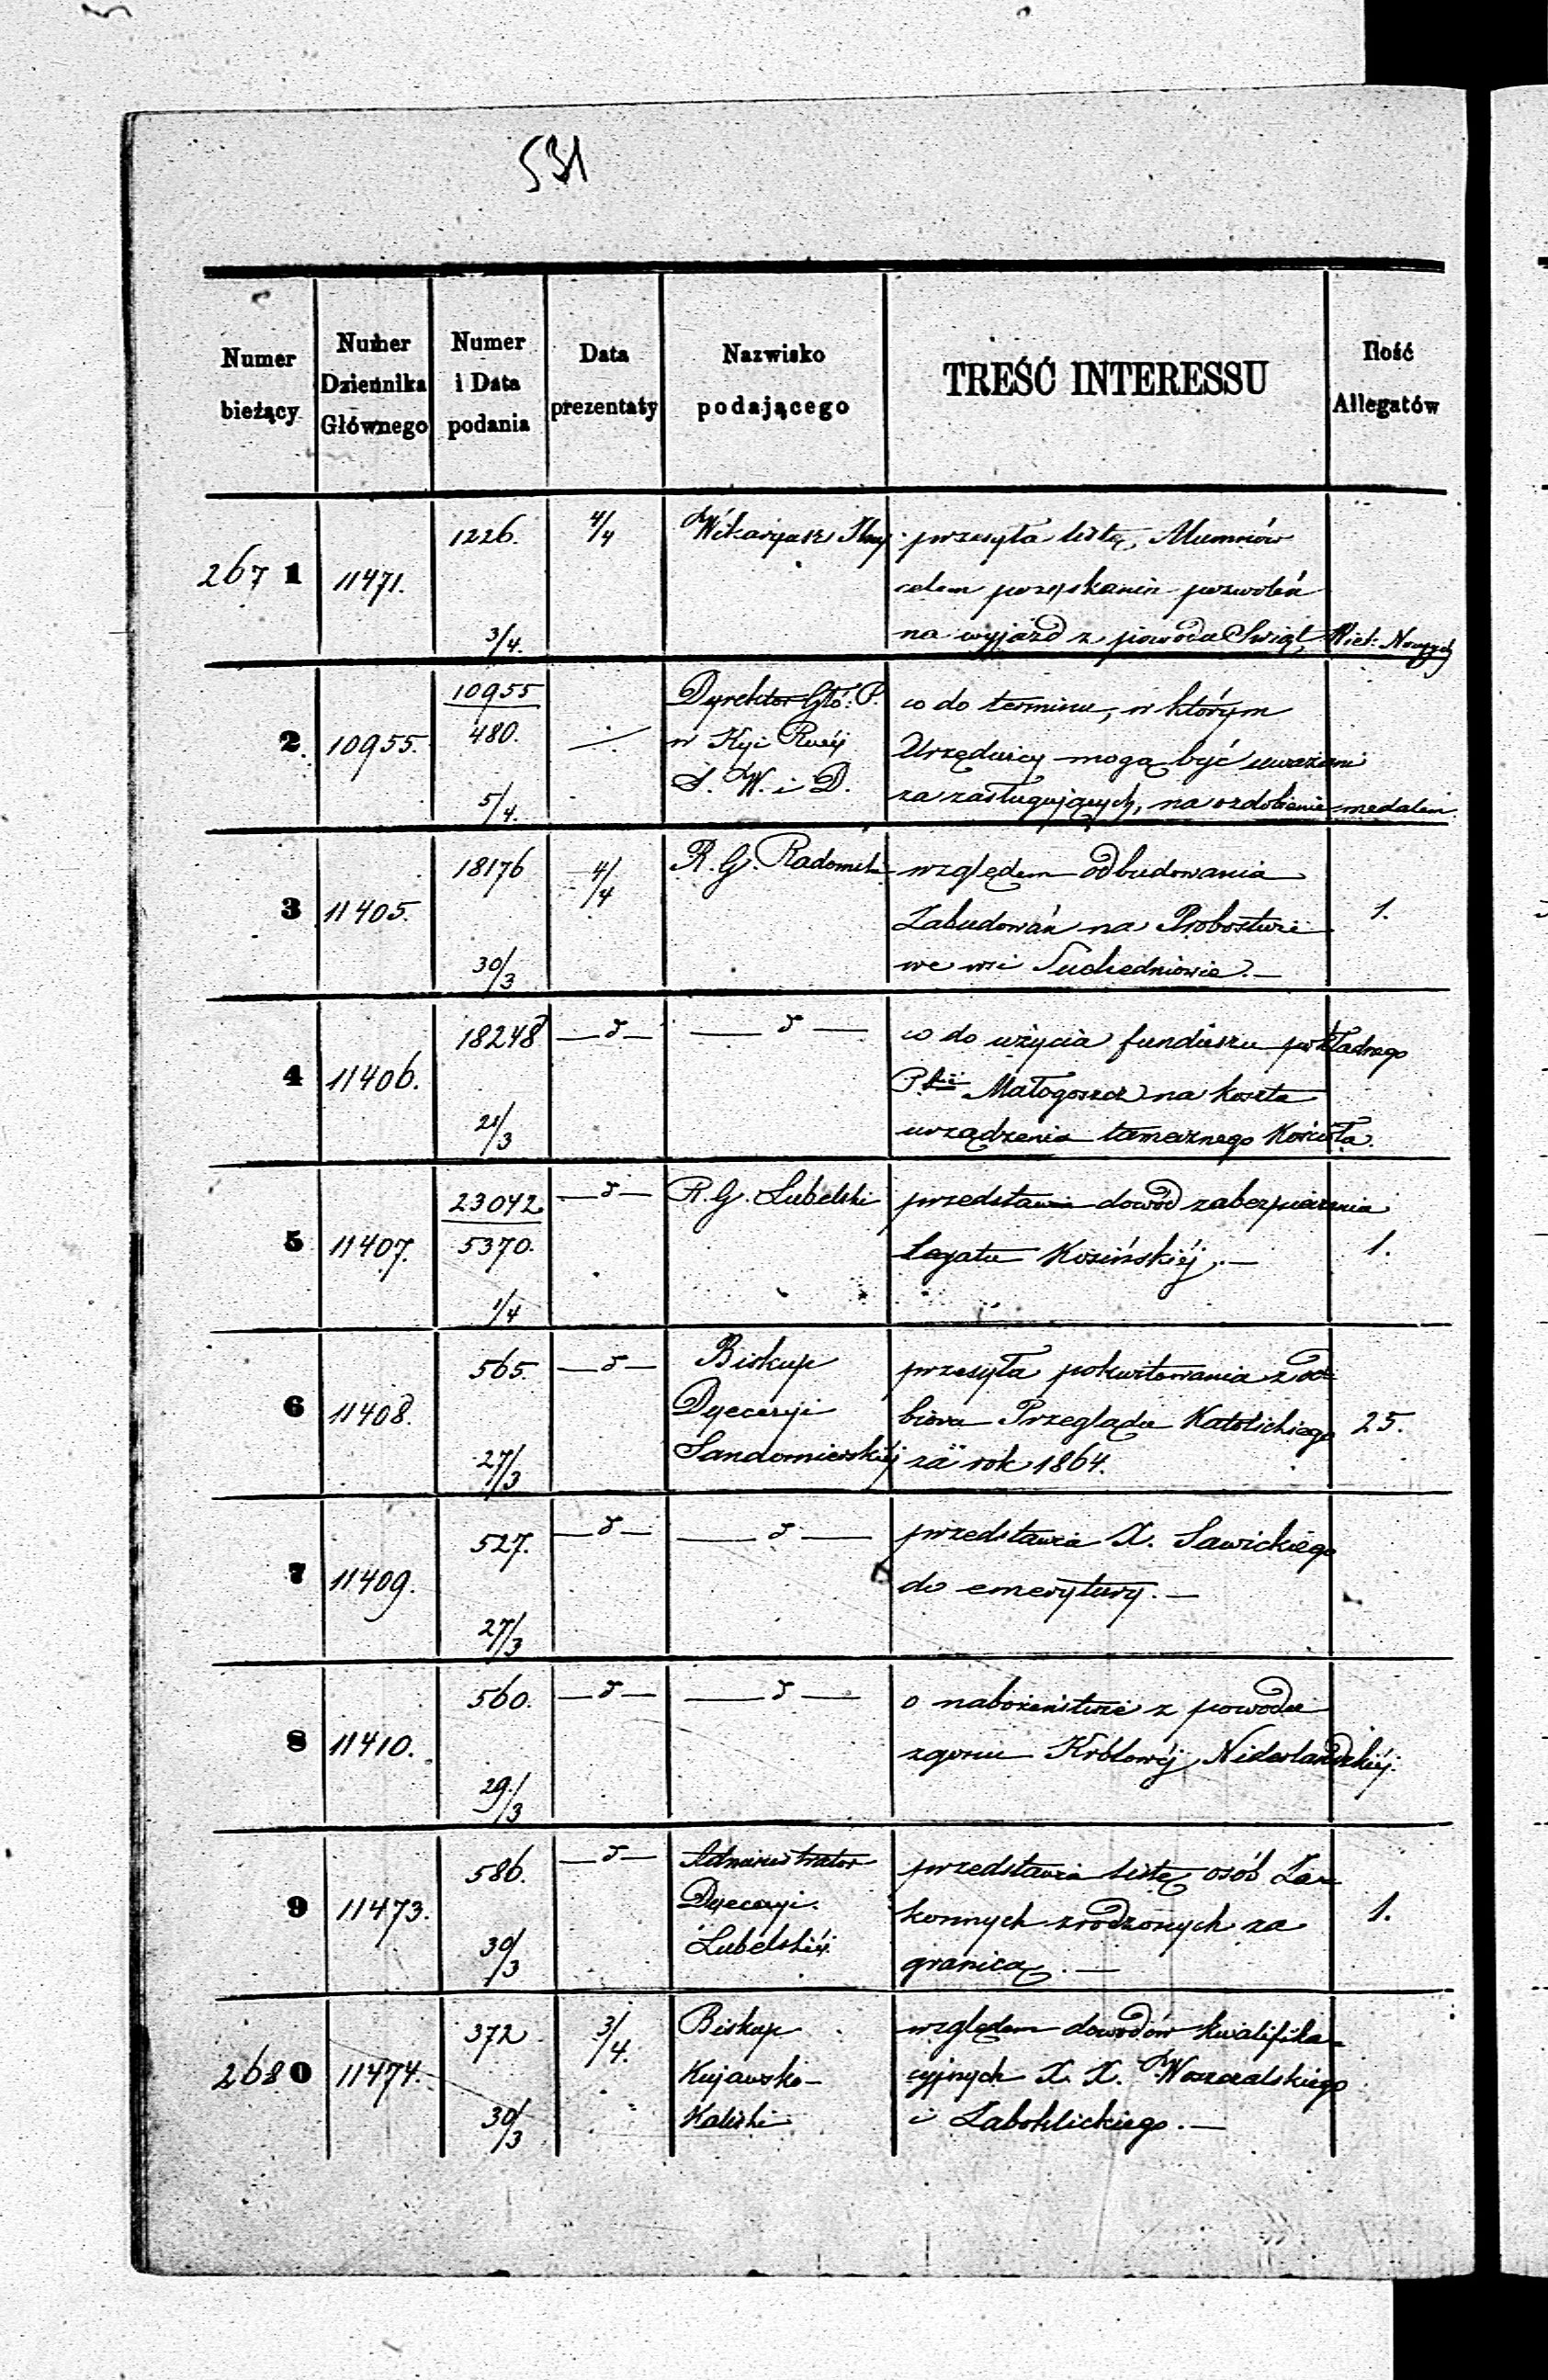 531
Numer bieżący
Numer Dziennika Głównego
Numer i Data podania
Data prezentaty
Nazwisko podającego
TREŚĆ INTERESSU
Ilość Allegatów
267 1
11471.
1226.
3/4.
4/4
Wikaryusz
przesyła listę
celem pozyskania pozwoleń
na wyjazd z powodu Świąt Wiel: Nocnych
2
10955.
10955
480.
5/4.
Dyrektor Głó: P.
w Kyi Rwéj
S. W. i D.
co do terminu, w którym
Urzędnicy mogą być uważani
za zasługujących, na ozdobienie medalem
3
11405.
18176
30/3
4/4
R. G. Radomski
względem odbudowania
Zabudowań na Probostwie
we wsi Suchedniowie. —
1.
4
11406.
18248
21/3
— d —
— d —
co do użycia funduszu pokładnego
P.kii Małogoszcz na koszta
urządzenia tamecznego Kościoła.
5
11407.
23042
5370.
1/4
— d —
R. G. Lubelski
przedstawia dowód zabezpieczenia
Legatu Kosińskiéj. —
1.
6
11408.
565.
27/3
— d —
Biskup
Dyecezyi
Sandomierskiéj
przesyła pokwitowania z od-
bioru Przeglądu Katolickiego
za rok 1864.
25.
7
11409.
527.
27/3
— d —
— d —
przedstawia X. Sawickiego
do emerytury. —
8
11410.
560.
29/3
— d —
— d —
o nabożeństwie z powodu
zgonu Królowéj Niderlandzkiéj.
9
11473.
586.
30/3
— d —
Administrator
Dyecezyi
Lubelskiéj
przedstawia listę osób Za-
konnych zrodzonych za
granicą. —
1.
268 0
11474.
372
30/3
3/4.
Biskup
Kujawsko-
Kaliski
względem dowodów kwalifika-
cyjnych X. X.
i